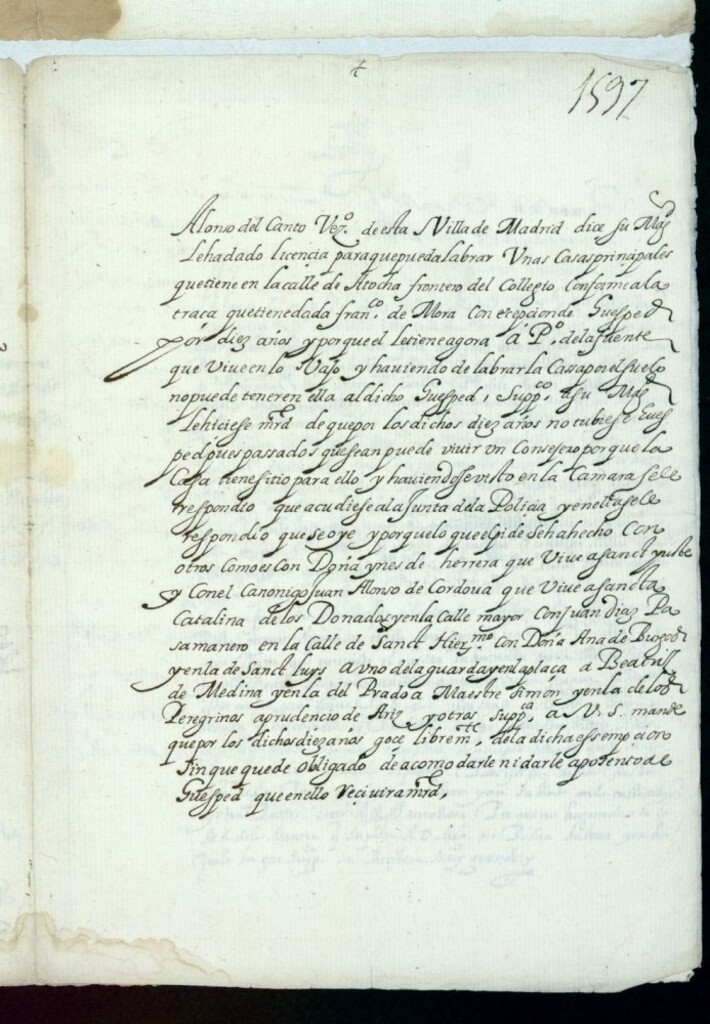 1597
Alonso del Canto Vezº. de esta Villa de Madrid dice su Magd
le ha dado licencia para que pueda labrar Unas Casas principales
que tiene en la calle de Atocha frontero del Collegio conforme a la
traca que tiene dada franco. de Mora con excepcion de Guesped
por diez años y porque el le tiene agora á Pº. de la fuente
que Vive en lo Vajo y haviendo de labrar la Cassa por el suelo
no puede tener en ella al dicho Guesped, Suppco. a su Magd
le hiciese mrd de que por los dichos diez años no tubiese Gues
ped pues passados que sean puede vivir un Consejero por que la
Casa tiene sitio para ello y haviendose visto en la Camara se le
respondio que acudiese a la Junta de la Policia y en ella se le
respondio que se oye y porque lo que el pide se ha hecho con
otros como es con Doña ynes de herrera que Vive a Sanct
y Con el Canonigo Juan Alonso de Cordova que Vive a Sancta
Catalina de los Donados y en la Calle mayor con Juan diaz Pa
samanero en la Calle de Sanct Hiermo. con Doña Ana de
y en la de Sanct luys a uno de la guarda y en la placa a Beatriz
de Medina y en la del Prado a Maestre simon y en la de los
Peregrinos a prudencio de Ariz y otros suppca. a V. S. mande
que por los dichos diez años goce libremte. de la dicha essempcion
sin que quede obligado de acomodarle ni darle aposento de
Guesped que en ello Recivira mrd,